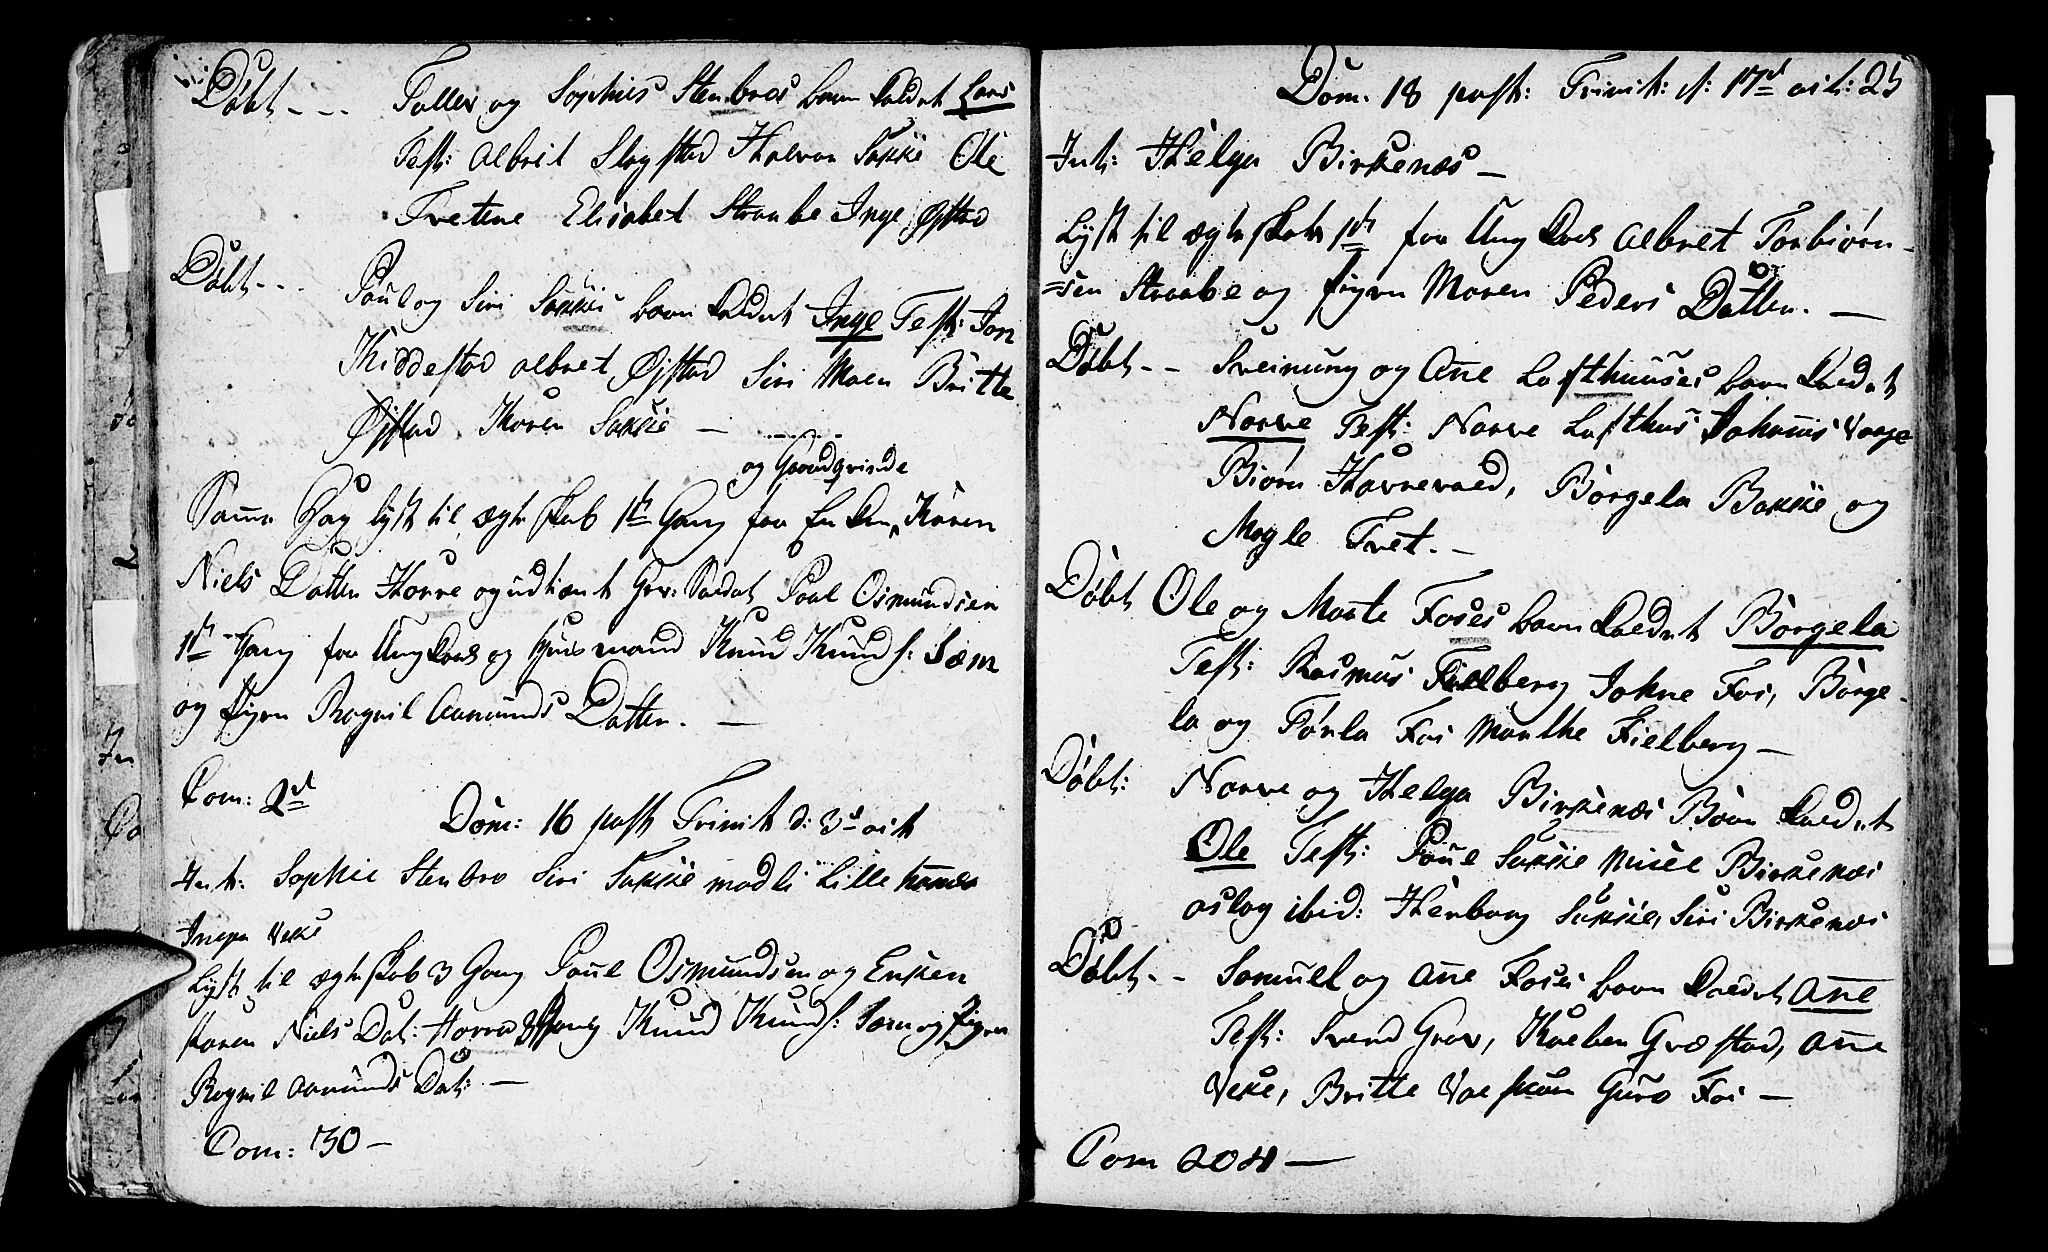 Døbt - - - Talles og Sophies Stenbroes barn kaldet Lars
Test: Albret Slogstad Halvor Sakkie Ole
Tvetene Elisabet Straabe Inge Øfstad
Døbt - - - Poul og Siri Sakkies barn kaldet Inge Test: Jon
Kiddestad Albret Øjstad Siri Moen Britte
Øjstad Karen Sakkie —
og Gaardqvinde
Samme Dag lyst til ægteskab 1te Gang for Enken Karen
Niels Datter Horre og udtient Gev: Soldat Poul Osmundsen
1te Gang for Ungkarl og Huusmand Knud Knuds: Sæm
og Pigen Ragnil Aamunds Datter. —
Com: 2d
Dom: 16 post Trinit d: 3d oct
Int: Sophie Stenbro Siri Sakkie madli Lille
Inger Veke
Lyst til ægteskab 3 Gang Poul Osmundsen og Enken
Karen Niels Dat: Horre 3 Gang Knud Knuds: Sæm og Pigen
Ragnil Aamunds Dat: —
Com: 30 —
Dom. 18 post: Trinit: d: 17d oct: 25
Int: Helga Birkenæs —
Lyst til ægteskab 1te for Ung Karl Albret Torbiørn-
=sen Straabe og Pigen Maren Peders Datter. —
Døbt - - Sveinung og Ane Lofthuuses barn kaldet
Norve Test: Norve Lofthus Johanis Vaage
Biørn Havrevæd, Børgela Bakkie og
Mogle Tvet. —
Døbt Ole og Marte Foses barn kaldet Børgela
Test: Rasmus Fielberg Johne Fos, Børge-
la og Tørla Fos Marthe Fielberg —
Døbt: Norve og Helga Birkenæs Barn kaldet
Ole Test: Poul Sakkie Niels Birkenæs
aslog ibid: Henborg Sakkie, Siri Birkenæs
Døbt - - Samuel og Ane Foses barn kaldet Ane
Test: Svend Grov, Græstad, Ane
Veke, Britte Guro Fos —
Com 20